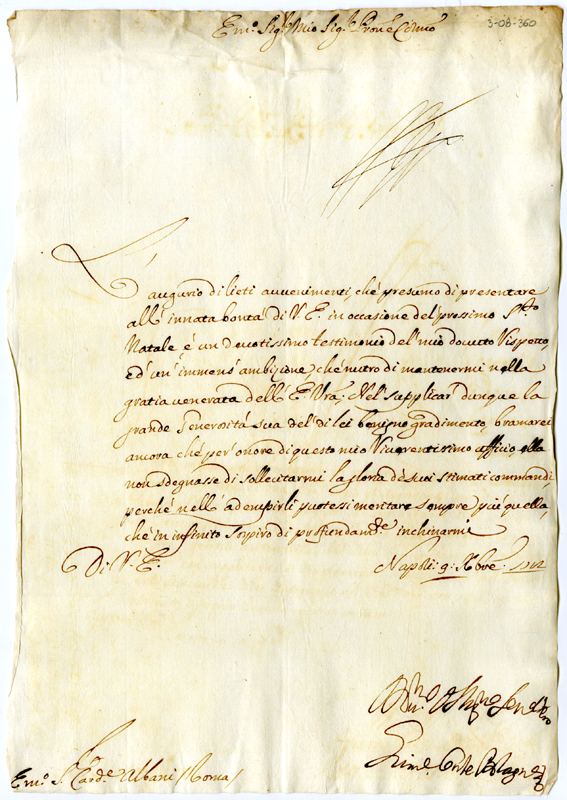 3-08-360
Em.o Sig.r Mio Sig.r Pron.e
L'augurio di lieti avvenimenti, che presumo di presentare
all'innata bontà di V. E. in occasione del prossimo S.to
Natale è un devotissimo testimonio del mio dovuto rispetto,
ed un' immens' ambizione che nutro di mantenermi nella
gratia venerata dell' E. Vra. Nel supplicar dunque la
grande generosità sua del di lei benigno gradimento, bramarei
ancora che per onore di questo mio riverentissimo officio, ella
non sdegnasse di sollecitarmi la gloria de suoi stimati commandi
perche nell' adempirli potessi meritare sempre più quella,
che in infinito sospiro di profondam.te inchinarmi
Di V. E.
Napoli 9: Xbre
Em.o S. Card.e Albani / Roma /
Conte Bologn